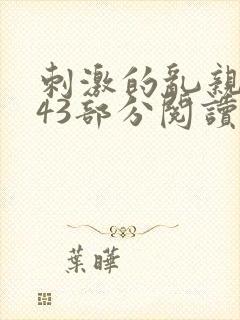 刺激的亂親
43部分閱讀
葉曄